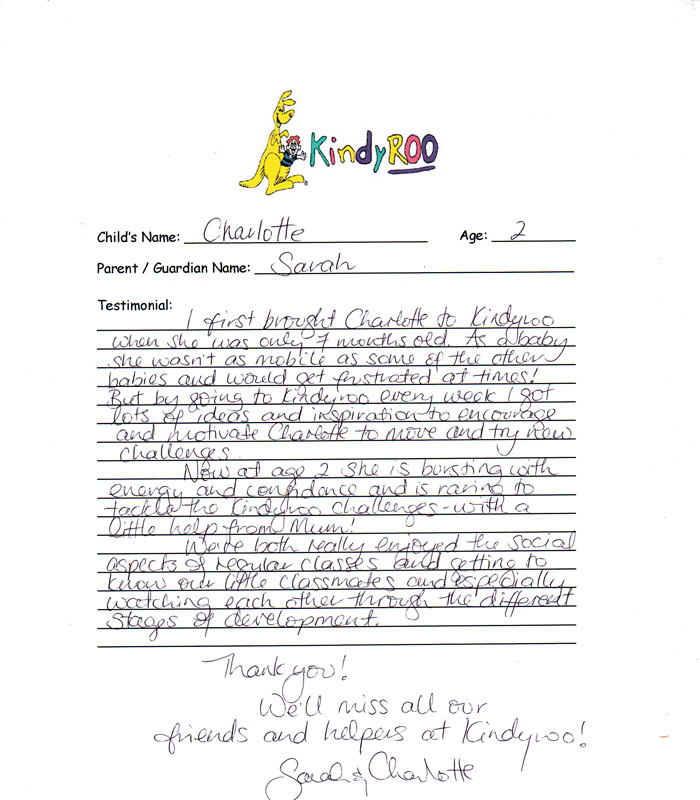 KindyROO
Child's Name: Charlotte Age: 2
Parent / Guardian Name: Sarah
Testimonial:
I first brought Charlotte to Kindyroo
when she was only 7 months old. As a baby
she wasn't as mobile as some of the other
babies and would get frustrated at times!
But by going to Kindyroo every week I got
lots of ideas and inspiration to encourage
and motivate Charlotte to move and try new
challenges.
Now at age 2 she is bursting with
energy and confidance and is raring to
tackle the Kindyroo challenges - with a
little help from Mum!
We've both really enjoyed the social
aspects of regular classes and getting to
know our little classmates and especially
watching each other through the different
stages of development.
Thank you!
We'll miss all our
friends and helpers at Kindyroo!
Sarah & Charlotte